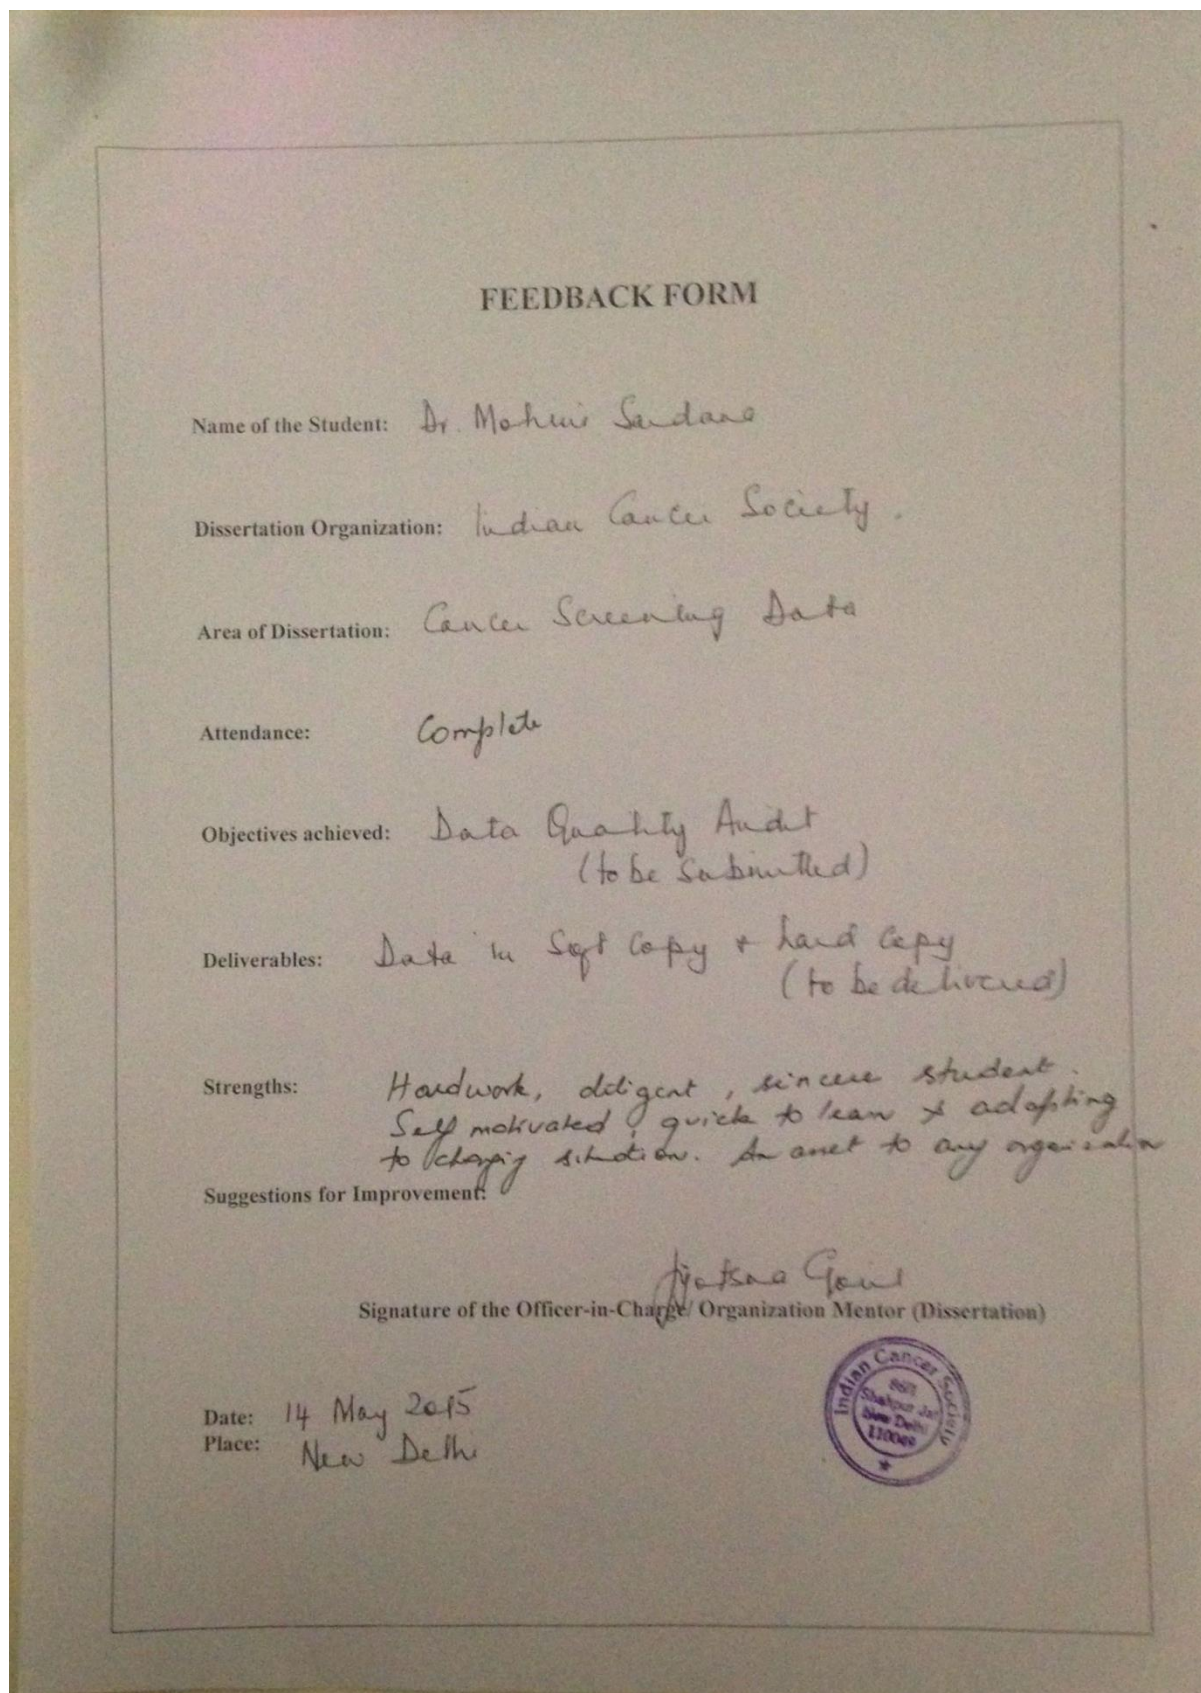 FEEDBACK FORM
Name of the Student: Dr. Mohini Sardana
Dissertation Organization: Indian Cancer Society.
Area of Dissertation: Cancer Screening Data
Attendance: Complete
Objectives achieved: Data Quality Audit
(to be submitted)
Deliverables: Data in Soft Copy + hard Copy
(to be delivered)
Strengths: Hardwork, diligent, sincere student.
Self motivated, quick to learn & adapting
to changing situation. An asset to any organization
Suggestions for Improvement:
Jyotsna Govil
Signature of the Officer-in-Charge/ Organization Mentor (Dissertation)
Indian Cancer Society
Shahpur Jat
New Delhi
110049
Date: 14 May 2015
Place: New Delhi